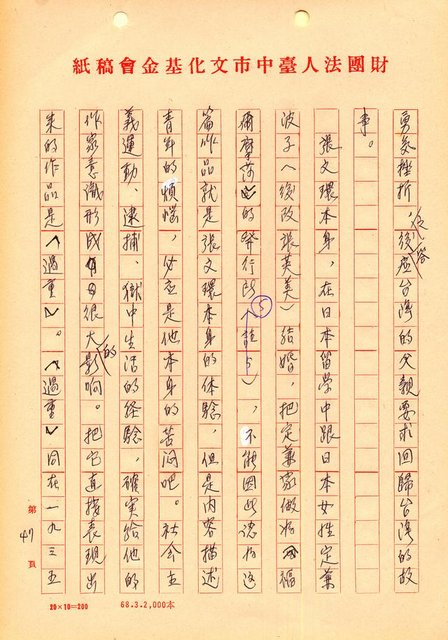 財團法人臺中市文化基金會稿紙
受挫折，後應台灣的父親要求回歸台灣的故
事。
張文環本身，在日本留學中跟日本女性定兼
波子（後改張芙美）結婚，把定兼家做為《福
爾摩莎》的發行所（註5），不能因此認為這
篇作品就是張文環本身的体驗，但是內容描述
青年的煩惱，必应是他本身的苦悶吧。社会主
義運動、逮捕、獄中生活的經驗，確實給他的
作家意識形成很大的影响。把它直接表現出
来的作品是《過重》。《過重》同在一九三五
第47頁
20×10=200 68.3.2,000本